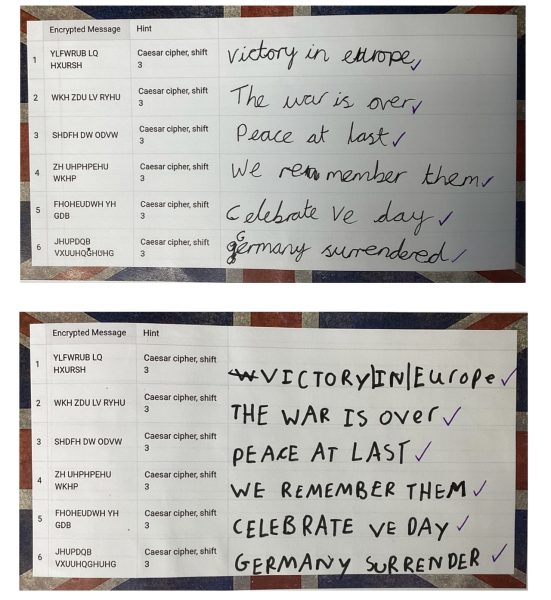 Encrypted Message Hint
1 YLFWRUB LQ HXURSH Caesar cipher, shift 3 Victory in europe
2 WKH ZDU LV RYHU Caesar cipher, shift 3 The war is over
3 SHDFH DW ODVW Caesar cipher, shift 3 Peace at last
4 ZH UHPHPEHU WKHP Caesar cipher, shift 3 We remember them
5 FHOHEUDWH YH GDB Caesar cipher, shift 3 Celebrate Ve day
6 JHUPDQB VXUUHQGHUHG Caesar cipher, shift 3 Germany surrendered
Encrypted Message Hint
1 YLFWRUB LQ HXURSH Caesar cipher, shift 3 VICTORY|IN|Europe
2 WKH ZDU LV RYHU Caesar cipher, shift 3 THE WAR IS over
3 SHDFH DW ODVW Caesar cipher, shift 3 PEACE AT LAST
4 ZH UHPHPEHU WKHP Caesar cipher, shift 3 WE REMEMBER THEM
5 FHOHEUDWH YH GDB Caesar cipher, shift 3 CELEBRATE VE DAY
6 JHUPDQB VXUUHQGHUHG Caesar cipher, shift 3 GERMANY SURRENDER